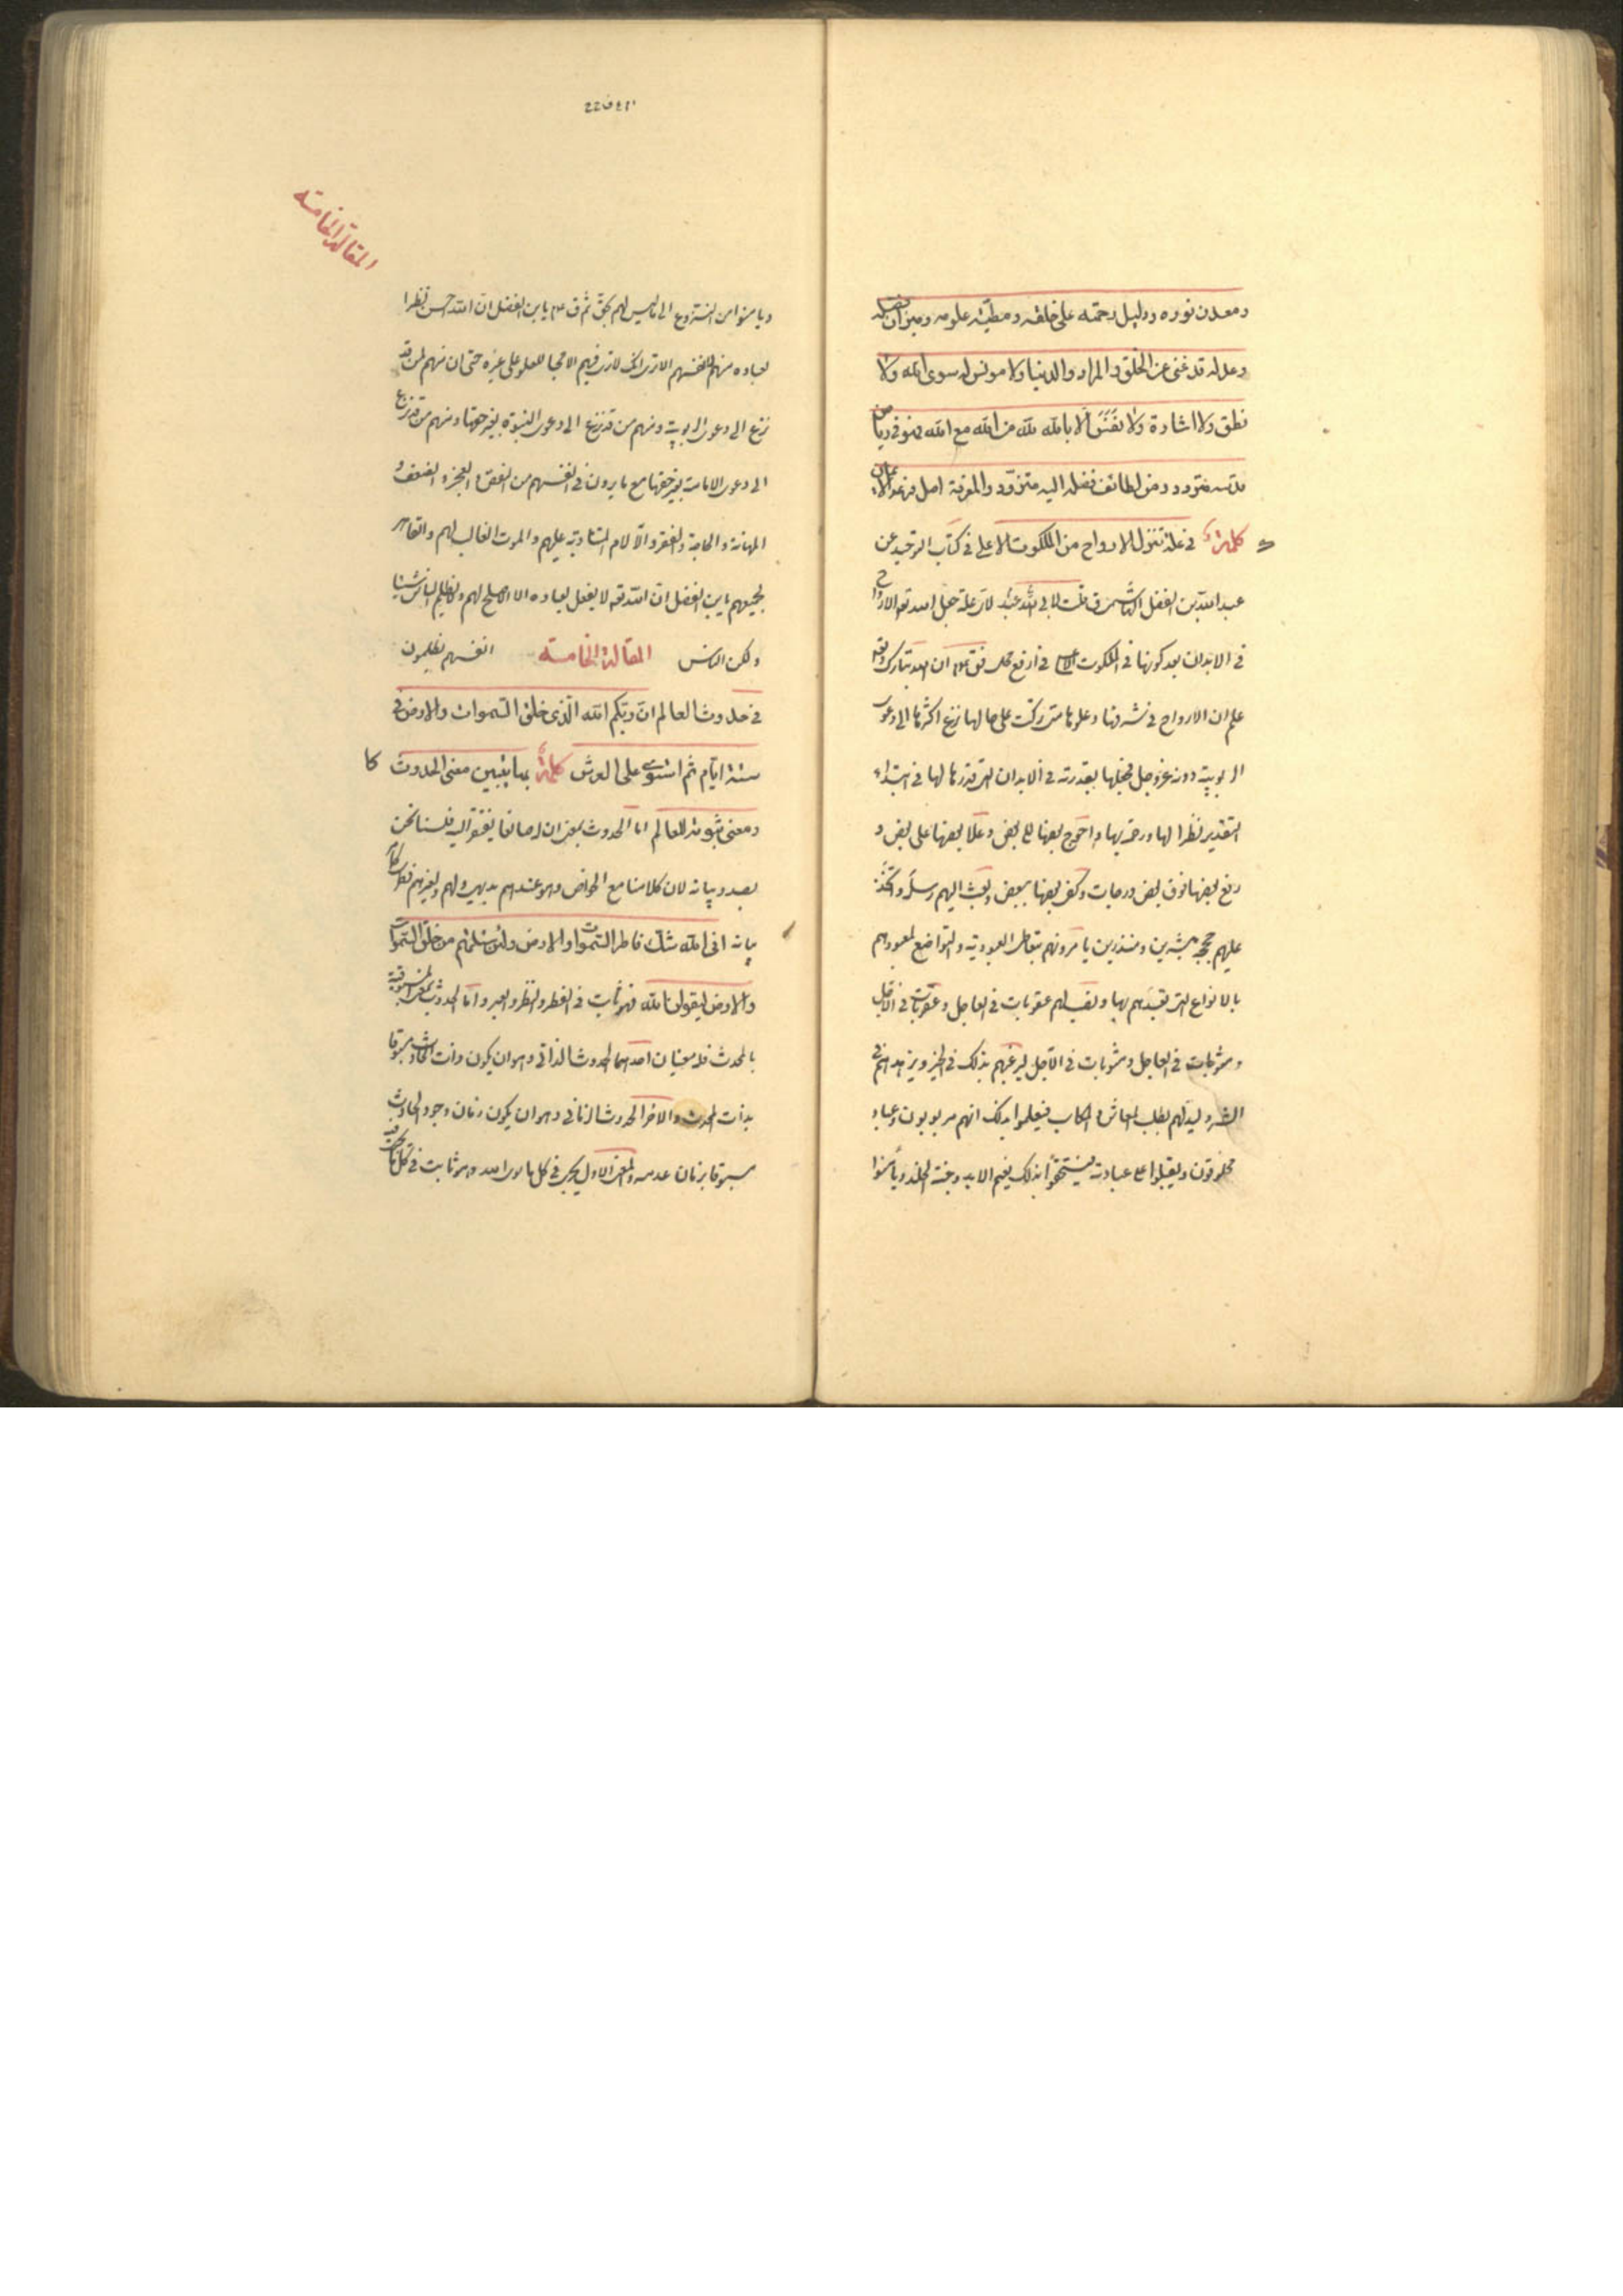 ومعدن نوره ودليل رحمته على خلقه ومطيّة علومه وميزان فضله
وعدله قد غنى عن الخلق والمراد والدنيا ولا مونس له سوى الله ولا
نطق ولا اشارة ولا نفس الا بالله لله من الله مع الله فهو فى رياض
قدسه متردد ومن لطائف فضله اليه متزود والمعرفة اصل فرعه الايمان
كلمة فى علة تنزل الارواح من الملكوت الاعلى فى كتاب التوحيد عن
عبد الله بن الفضل الهاشمى ق قلت لابى عبد الله لاى علة جعل الله تعه الارواح
فى الابدان بعد كونها فى الملكوت الاعلى فى ارفع محل فق ان الله تبارك وتعه
علم ان الارواح فى شرفها وعلوها متى تركت على حالها نزع اكثرها الى دعوى
الربوبية دونه عز وجل فجعلها بقدرته فى الابدان التى قدرها لها فى ابتداء
التقدير نظرا لها ورحمة بها واحوج بعضها الى بعض وعلا بعضها على بعض و
رفع بعضها فوق بعض درجات وكفى بعضها ببعض وبعث اليهم رسله واتخذ
عليهم حججه مبشرين ومنذرين يامرونهم بتعاطى العبودية والتواضع لمعبودهم
بالانواع التى تعبدهم بها ونصب لهم عقوبات فى العاجل وعقوبات فى الاجل
ومثوبات فى العاجل ومثوبات فى الآجل ليرغبهم بذلك فى الخير ويزهدهم فى
الشر وليدلهم بطلب المعاش والمكاسب فيعلموا بذلك انهم مربوبون وعباد
مخلوقون ويقبلوا على عبادته فيستحقوا بذلك نعيم الابد وجنة الخلد ويامنوا
المقالة الخامسة
ويامنوا من النزوع الى ما ليس لهم بحق ثم ق يا بن الفضل ان الله احسن نظرا
لعباده منهم لانفسهم الا ترى انك لا ترى فيهم الا محبا للعلو على غيره حتى ان منهم لمن قد
نزع الى دعوى الربوبية ومنهم من قد نزع الى دعوى النبوة بغير حقها ومنهم من قد نزع
الى دعوى الامامة بغير حقها مع ما يرون فى انفسهم من النقص والعجز والضعف و
المهانة والحاجة والفقر والآلام المتناوبة عليهم والموت الغالب لهم والقاهر
لجميعهم يا بن الفضل ان الله تعه لا يفعل لعباده الا الاصلح لهم ولا يظلم الناس شيئا
ولكن الناس المقالة الخامسة انفسهم يظلمون
فى حدوث العالم ان ربكم الله الذى خلق السموات والارض فى
ستة ايام ثم استوى على العرش كلمة بها يتبين معنى الحدوث
ومعنى ثبوته للعالم اما الحدوث بمعنى ان له صانعا يفتقر اليه فلسنا نحن
بصدد بيانه لان كلامنا مع الخواص وهو عندهم بديهى ولهم ولغيرهم فطرى
بيانه افى الله شك فاطر السموات والارض ولئن سئلتهم من خلق السموات
والارض ليقولن الله فهو ثابت فى الفطر والنظر والعبر واما الحدوث بمعنى المسبوقية
بالمحدث فله معنيان احدهما الحدوث الذاتى وهو ان يكون ذات الحادث مسبوقا
بذات المحدث والاخر الحدوث الزمانى وهو ان يكون زمان وجود الحادث
مسبوقا بزمان عدمه والمعنى الاول يجرى فى كل ما سوى الله وهو ثابت فى كل